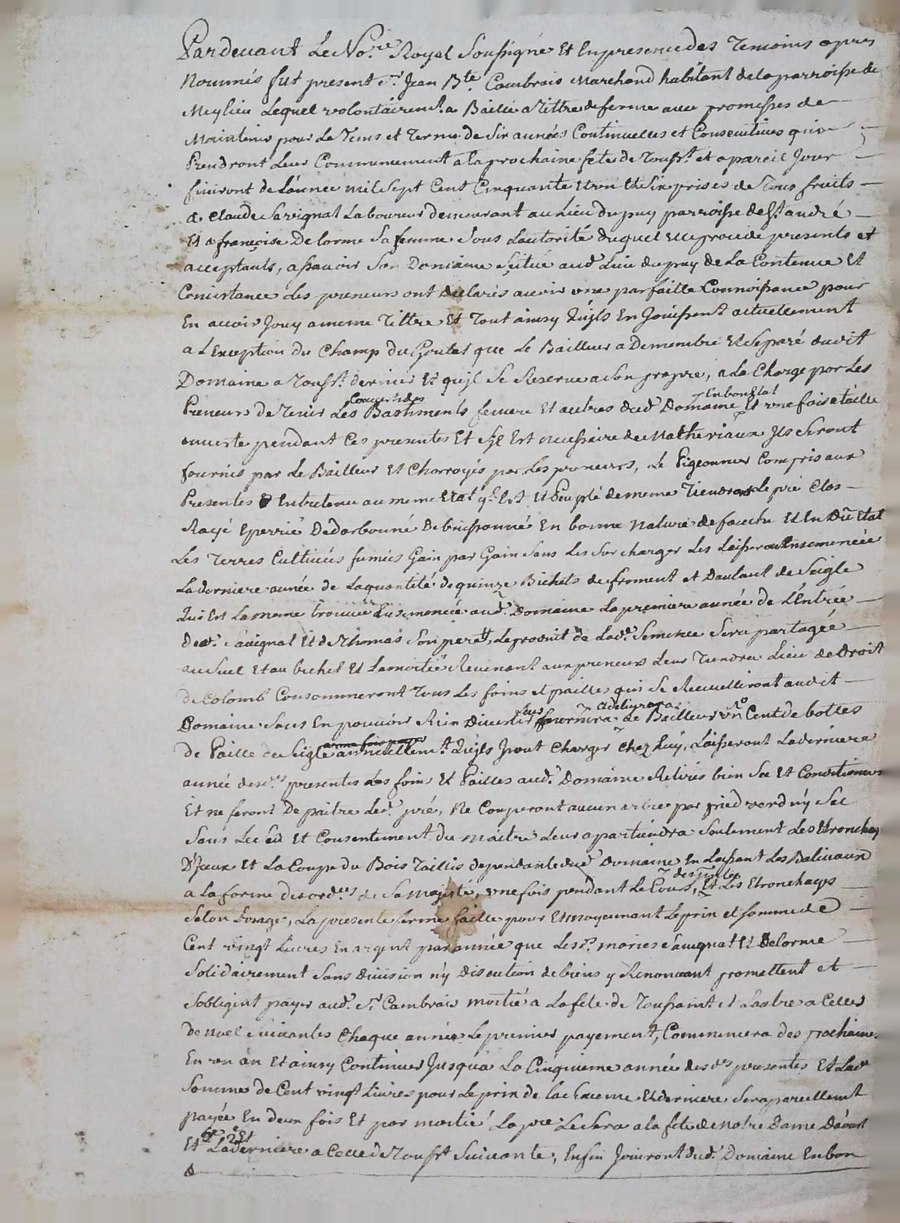 Pardevant Le No.re Royal Soussigné Et En presence des Temoins apres
Nommés fut present S.r Jean B.te Cambrais Marchand habitant de la parroisse de
Meylieu Lequel volontairem.t a Baillé a Tittre de ferme avec promesses de
Maintenir pour Le Tems et Terme de Six années Continuelles et Consecutives qui
Prendront Leur Commencement a la prochaine fete de Touss.t et a pareil Jour
finiront de L'année mil Sept Cent Cinquante et Six prises de Tous fruits
a Claude Savignat Laboureur demeurant au Lieu du puy parroisse de S.t andré
Et a françoise Delorme Sa femme Sous Lautorité duquel Elle procede presents et
acceptants, a Scavoir Son Domaine Scitué aud. Lieu du puy de La Contenue Et
Concistance Les preneurs ont declarés avoir une parfaitte Connoissance pour
En avoir Jouy a meme Tittre Et Tout ainsy Quils En Jouissent actuellement
a L'Exception du Champ du Goutat que Le Bailleur a Demembré Et Separé dudit
Domaine a Touss.t dernier Et quil Se Reserve a Son propre, a La Charge par Les
Preneurs de Tenir Les Couverts des Bastiments feniere Et autres dud. Domaine En bon Etat Et une fois a taille
ouverte pendant Ces presentes Et S'il Est necessaire de Matheriaux Ils Seront
fournis par Le Bailleur Et Charroyés par Les preneurs, Le Pigeonnier Compris aux
Presentes Entretenu au meme Etat q'il Est Et Peuplé de meme Tiendront Le pré Clos
Rayé Eperrié Dedarbonné Debuissonné En bonne Nature de fauche Et En Du Etat
Les Terres Cultivées fumées Gain par Gain Sans Les Surcharger Les Laisseront Ensemencée
La derniere année de La quantité de quinze Bichets de froment et Dautant de Seigle
Qui Est La meme trouvée Ensemencée aud. Domaine La premiere année de L'Entrée
Dud. Savignat Et de Thomas Son pere, Le produit de Lad.e Semence Sera partagée
au Suel Et au bichet Et La moitié Revenant aux preneurs Leur Tiendra Lieu de Droit
de Colomb Consommeront Tous Les foins et pailles qui Se Recueilliront audit
Domaine Sans En pouvoir Rien Divertir Sauf fourniront a delivrer a Le Bailleur un Cent de bottes
de Paille de Sigle annuellem.t Quils Iront Charger Chez Luy, Laisseront La derniere
année des.es presentes Les foins Et Pailles aud. Domaine Retirés bien Sec Et Conditionnés
Et ne feront De paitre Led. pré, Ne Couperont aucun arbre par pied verd n'y Sec
Sans Le Sçu Et Consentement du Maitre Leur apartiendra Seulement Les Etronchay
D'Iceux Et La Coupe du Bois Taillis dependante dud. Domaine En Laissant Les Baliveaux
a La forme des ord.es de Sa Majesté, une fois pendant Le Cours, des p.tes Et Les Etronchages
Selon Lusage, La presente ferme faitte pour Et moyennant Le prix et Somme de
Cent vingt Livres En argent par année que Les.s mariés Savignat Et Delorme
Solidairement Sans Division n'y Discution de biens y Renoncant promettent et
S'obligent payer aud. S.r Cambrais moitié a La fete de Toussaint et L'autre a Celles
de Noel Suivantes Chaque année Le premier payement, Commencera des prochaine
En un an Et ainsy Continuer Jusqua La Cinquieme année des.es presentes Et Lad.e
Somme de Cent vingt Livres pour Le prix de La Sixieme Et derniere Sera pareillement
payée En deux fois Et par moitié La p.re Le Sera a La fete de Notre Dame Daoust
Et La derniere a Celle de Touss.t Suivante, Enfin Joüiront dud. Domaine En bon